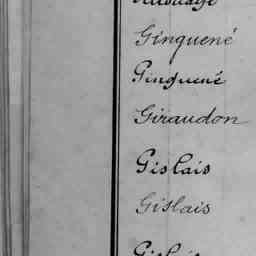 Ginguené
Ginguené
Giraudon
Gislais
Gislais